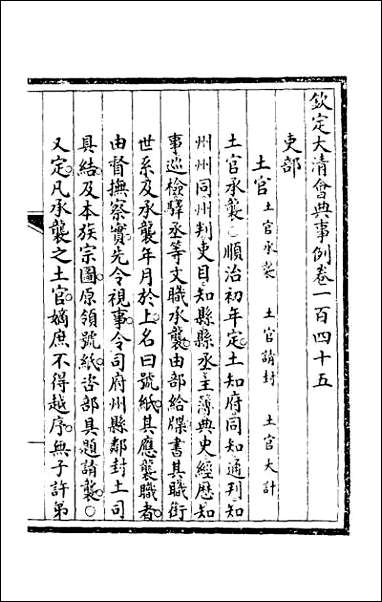 欽定大清會典事例卷一百四十五
吏部
土官 土官承襲 土官請封 土官大計
土官承襲○順治初年定土知府同知通判知
州州同州判吏目知縣縣丞主簿典史經歷知
事巡檢驛丞等文職承襲由部給牒書其職銜
世系及承襲年月於上名曰號紙其應襲職者
由督撫察實先令視事令司府州縣鄰封土司
具結及本族宗圖原領號紙咨部具題請襲○
又定凡承襲之土官嫡庶不得越序無子許弟